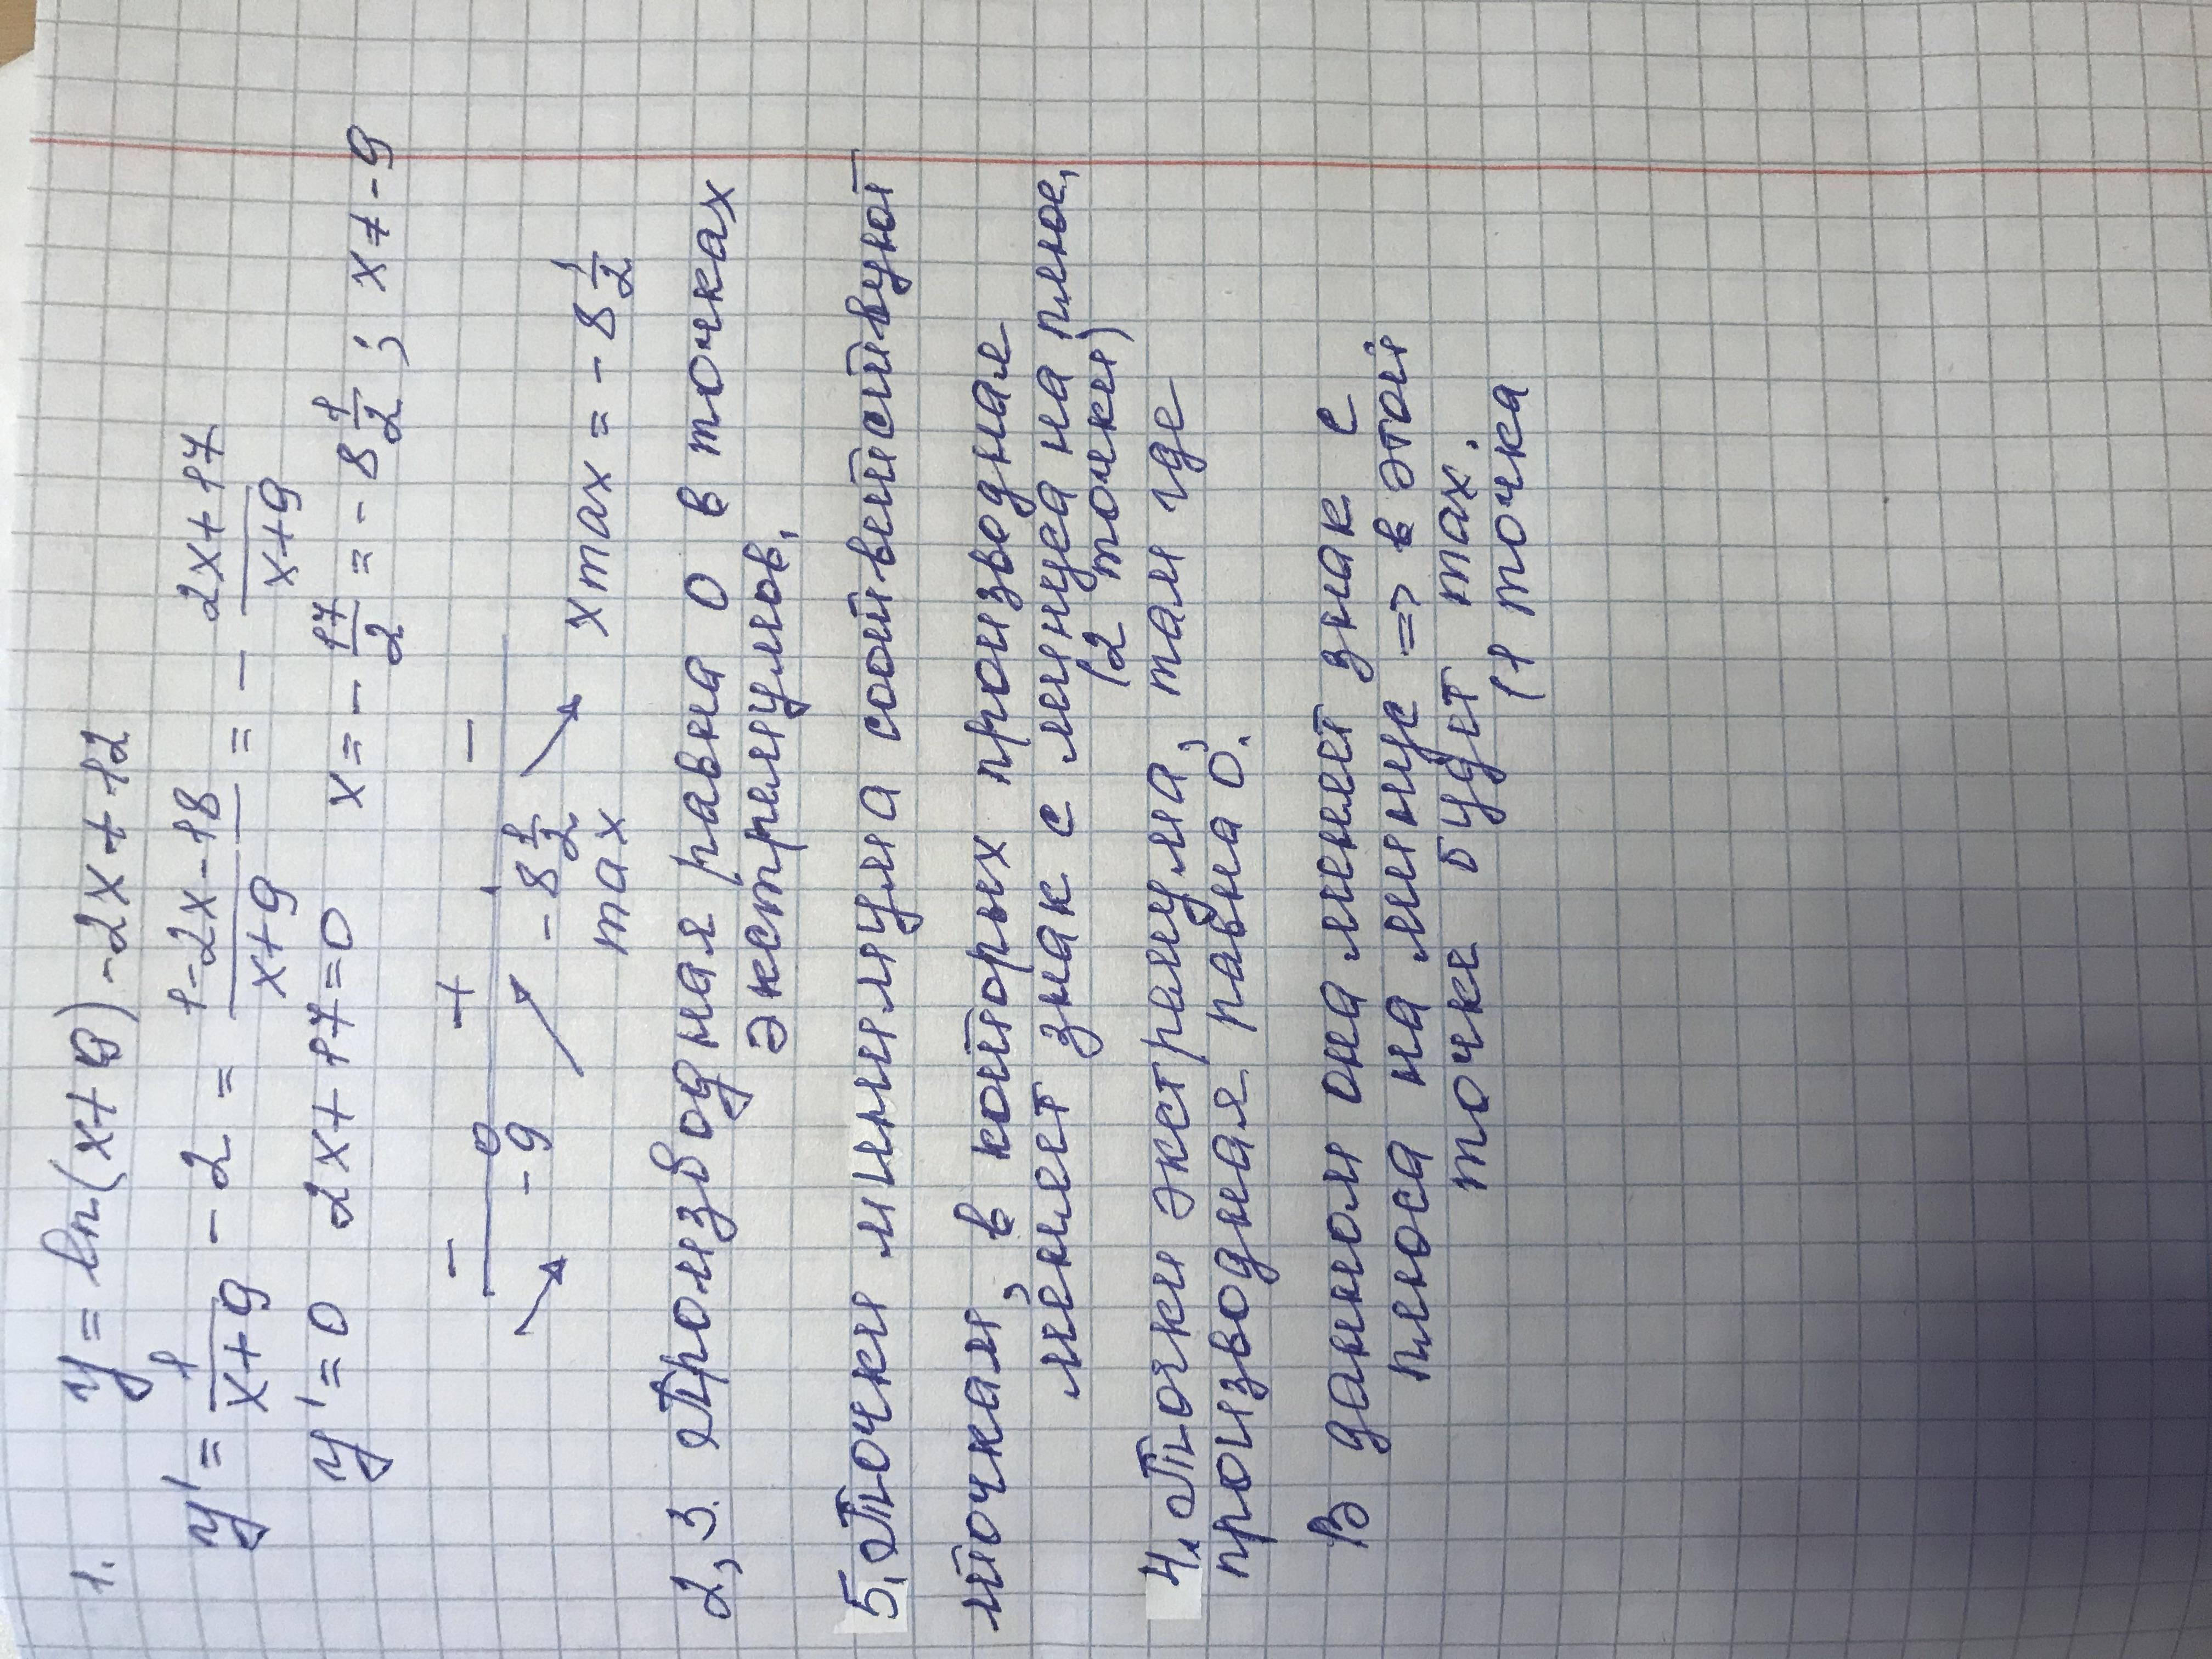 1. y = ln(x+9) -2x + 12
y' = 1/(x+9) - 2 = (1-2x-18)/(x+9) = - (2x+17)/(x+9)
y' = 0 2x+17=0 x = - 17/2 = - 8 1/2 ; x ≠ -9
- + -
-9 - 8 1/2
max x max = - 8 1/2
2, 3. Производная равна 0 в точках
экстремумов.
5. Точки минимума соответствуют
точкам, в которых производная
меняет знак с минуса на плюс,
(2 точки)
4. Точки экстремума, там где
производная равна 0.
В данном она меняет знак с
плюса на минус => в этой
точке будет max.
(1 точка